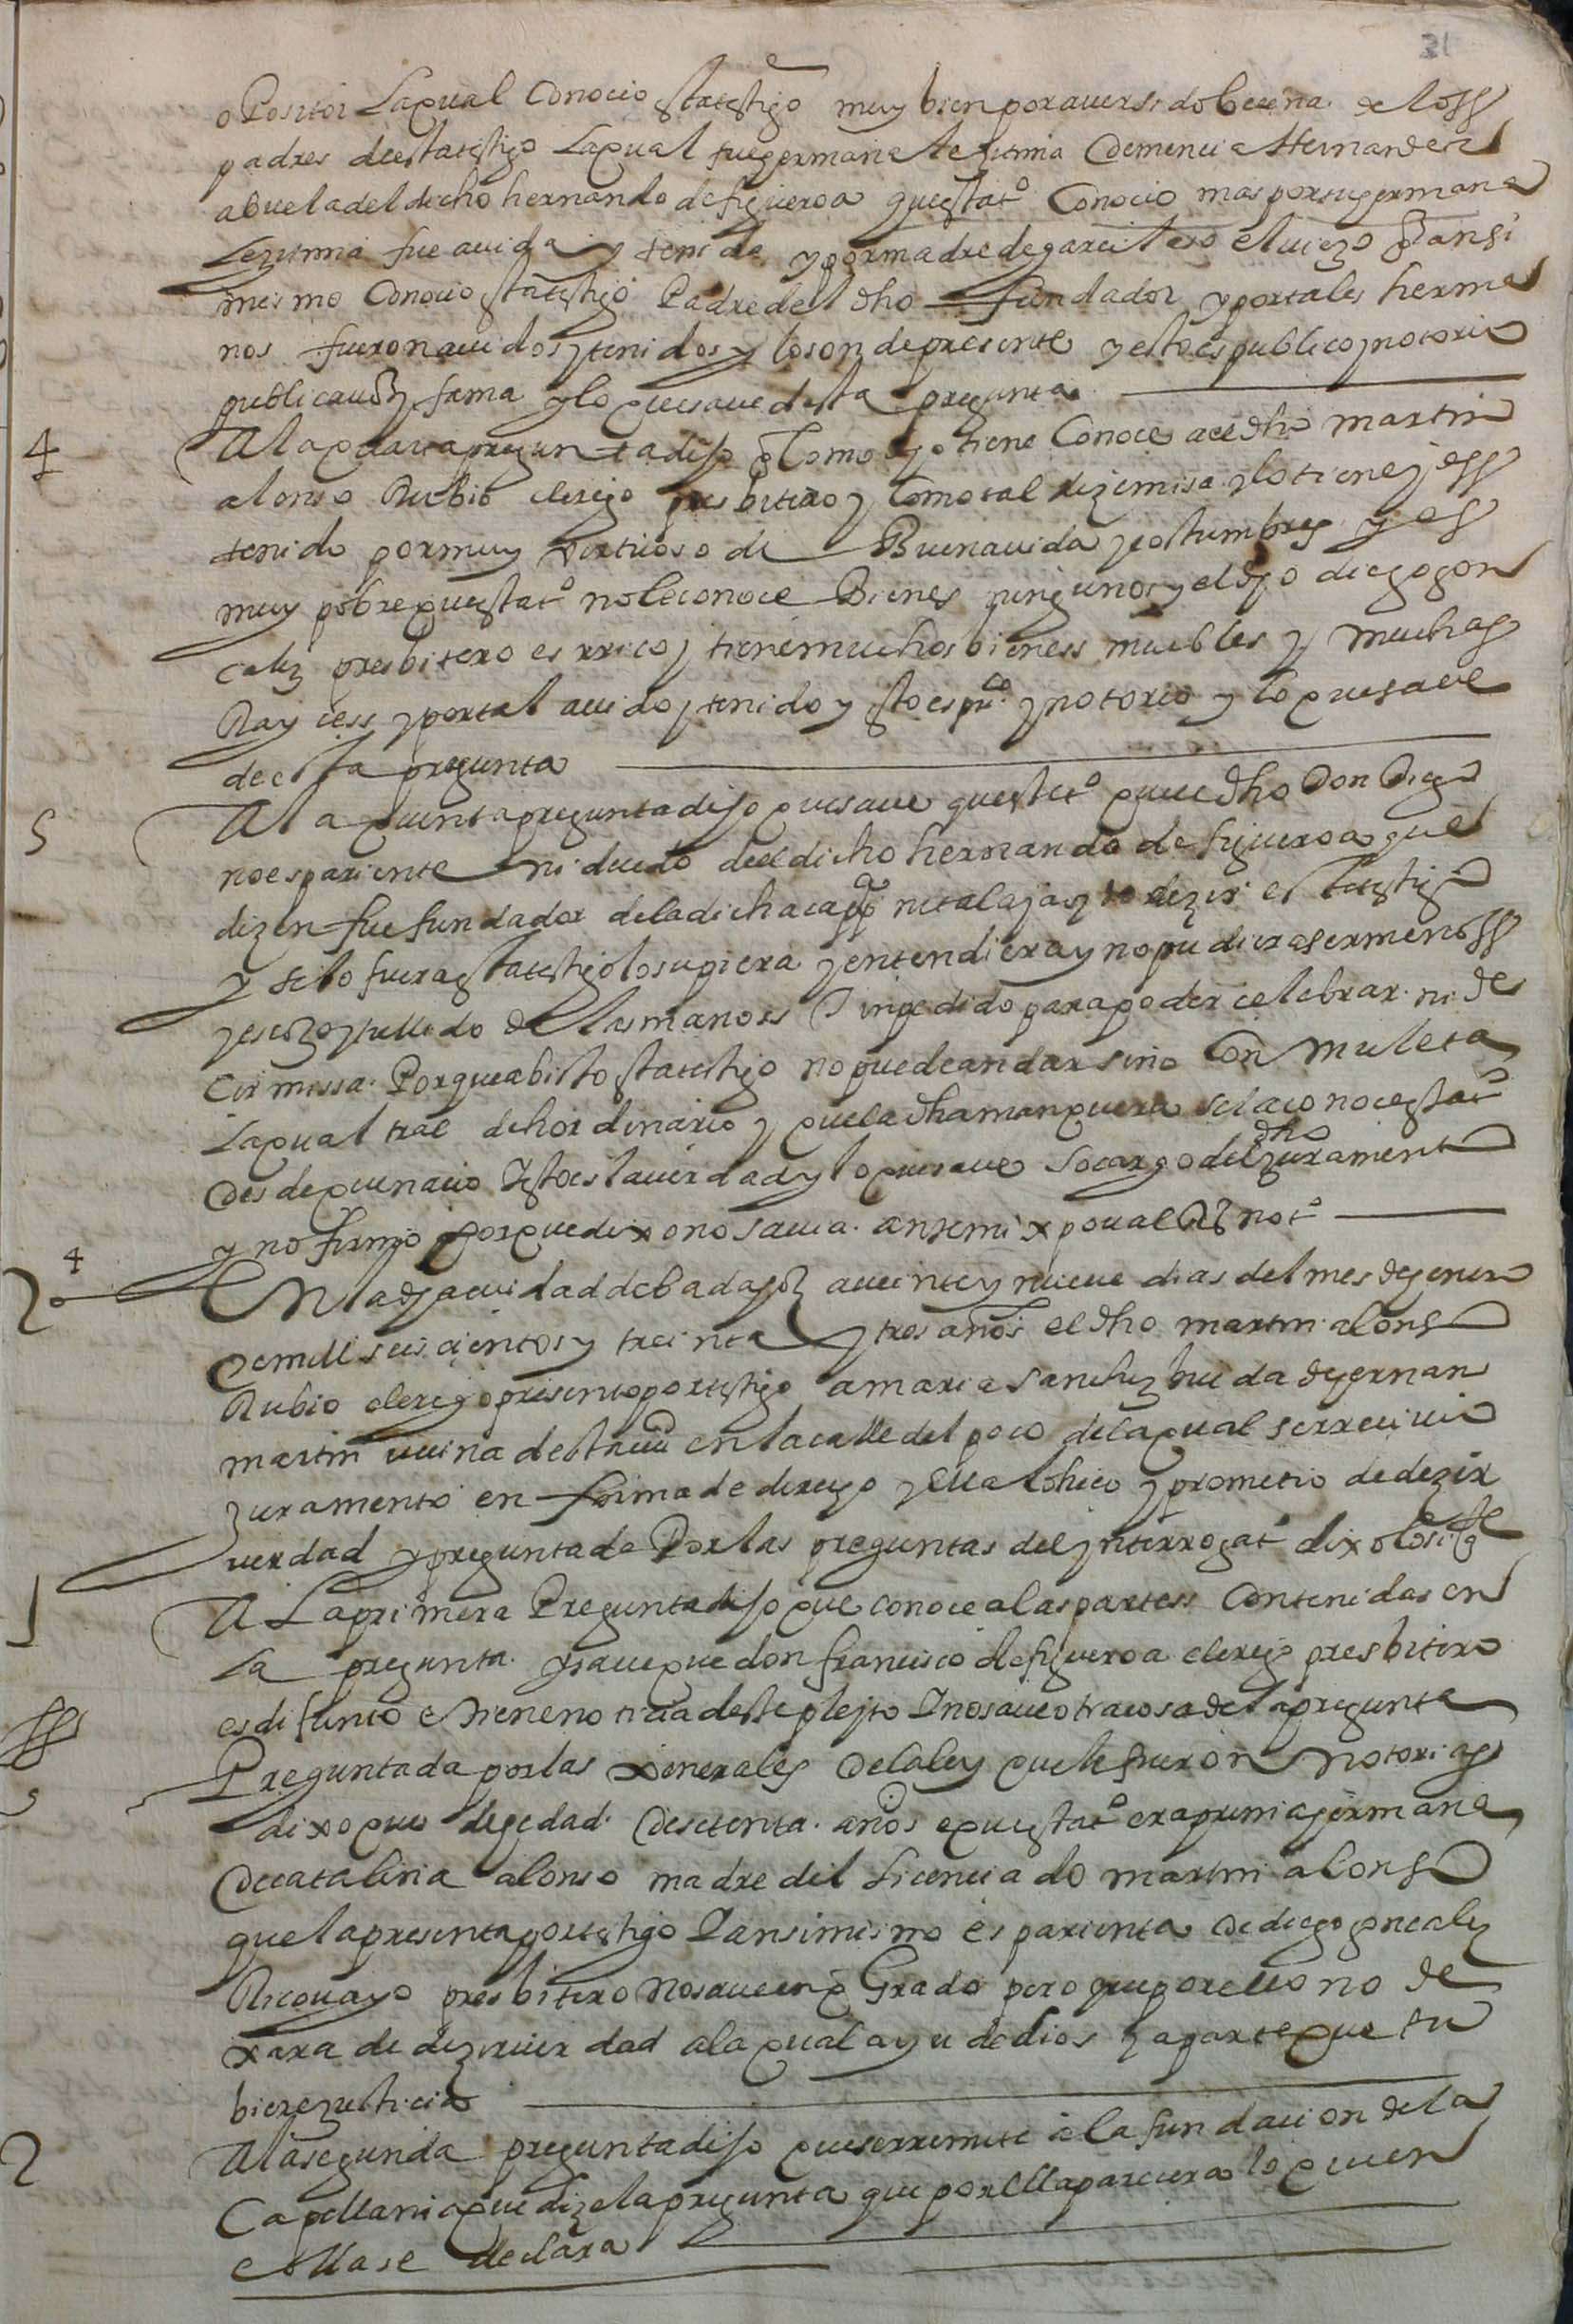 31
opositor la qual conocio esta testigo muy bien por aver sido becina de loss
padres de esta testigo la qual fue germana lexitima de mencia Hernandez
abuela del dicho hernando de figueroa questa tº conocio mas por su germana
lexitima fue avida y tenida y por madre de garcilaso el viejo y ansi
mesmo conocio esta testigo Padre del dho fundador y por tales herma
nos fueron avidos y tenidos y lo son de presente y esto es publico y notorio
publica voz y fama y lo que save desta pregunta
4 A la quarta pregunta dijo q como dijo tiene Conoce a el dho martin
alonso Rubio clerigo presbitero y como tal dize misa y lo tiene y ess
tenido por muy virtuoso de Buena vida y costumbres y es
muy pobre questa tº no le conoce Bienes ningunos y el dho diego gon
calez presbitero es rrico y tiene muchos bieness muebles y muchas
Rayzess y por tal avido y tenido y esto es pu.co y notorio y lo que save
de esta pregunta
5 A la quinta pregunta dijo que save questa tº que el dho Don Diego
no es pariente ni deudo de el dicho hernando de figueroa que
dizen fue fundador de la dicha capª ni tal a jamas oydo dezir esta testigo
y si lo fuera esta testigo lo supiera y entendiera y no pudiera ser menoss
y es cojo y tullido de las manos e ynpedido para poder celebrar ni de
cir missa. Porque a bisto esta testigo no puede andar sino con muleta
la qual trae de hordinario y que la dha manquera se la conoce esta tº
desde que nacio y esto es la verdad y lo que save so cargo del dho juramento
y no firmo porque dixo no savia. ante mi xpoval Rs notº
4 tº En la dha ciudad de badajoz a veinte y nueve dias del mes de henero
de mill seiscientos y treinta y tres años el dho martin alonso
Rubio clerigo presento por testigo a maria sanchez biuda de hernan
martin vecina desta ciud en la calle del poco de la qual se rrecivio
juramento en forma de derecho y ella lo hico y prometio de dezir
verdad y preguntada Por las preguntas del ynterrogatº dixo lo sigte
1 A La primera Pregunta dijo que conoce a las partess contenidas en
la pregunta. y save que don francisco de figueroa clerigo presbitero
es difunto e tiene noticia deste pleyto y no save otra cosa de la pregunta
Preguntada por las xenerales de la ley que le fueron notorias
dixo que es de hedad de setenta años e questa tº era prima jermana
de catalina alonso madre del licenciado martin alonso
que la presenta por testigo y ansimismo es parienta de diego goncalez
Recuayo presbitero no save en q Grado pero que por ello no de
xara de dezir verdad a la qual ayude dios y a parte que tu
biere justicia
2 A la segunda pregunta dijo que se rremite a la fundacion de la
Capellania que dize la pregunta que por ella parecera lo que en
ella se declara